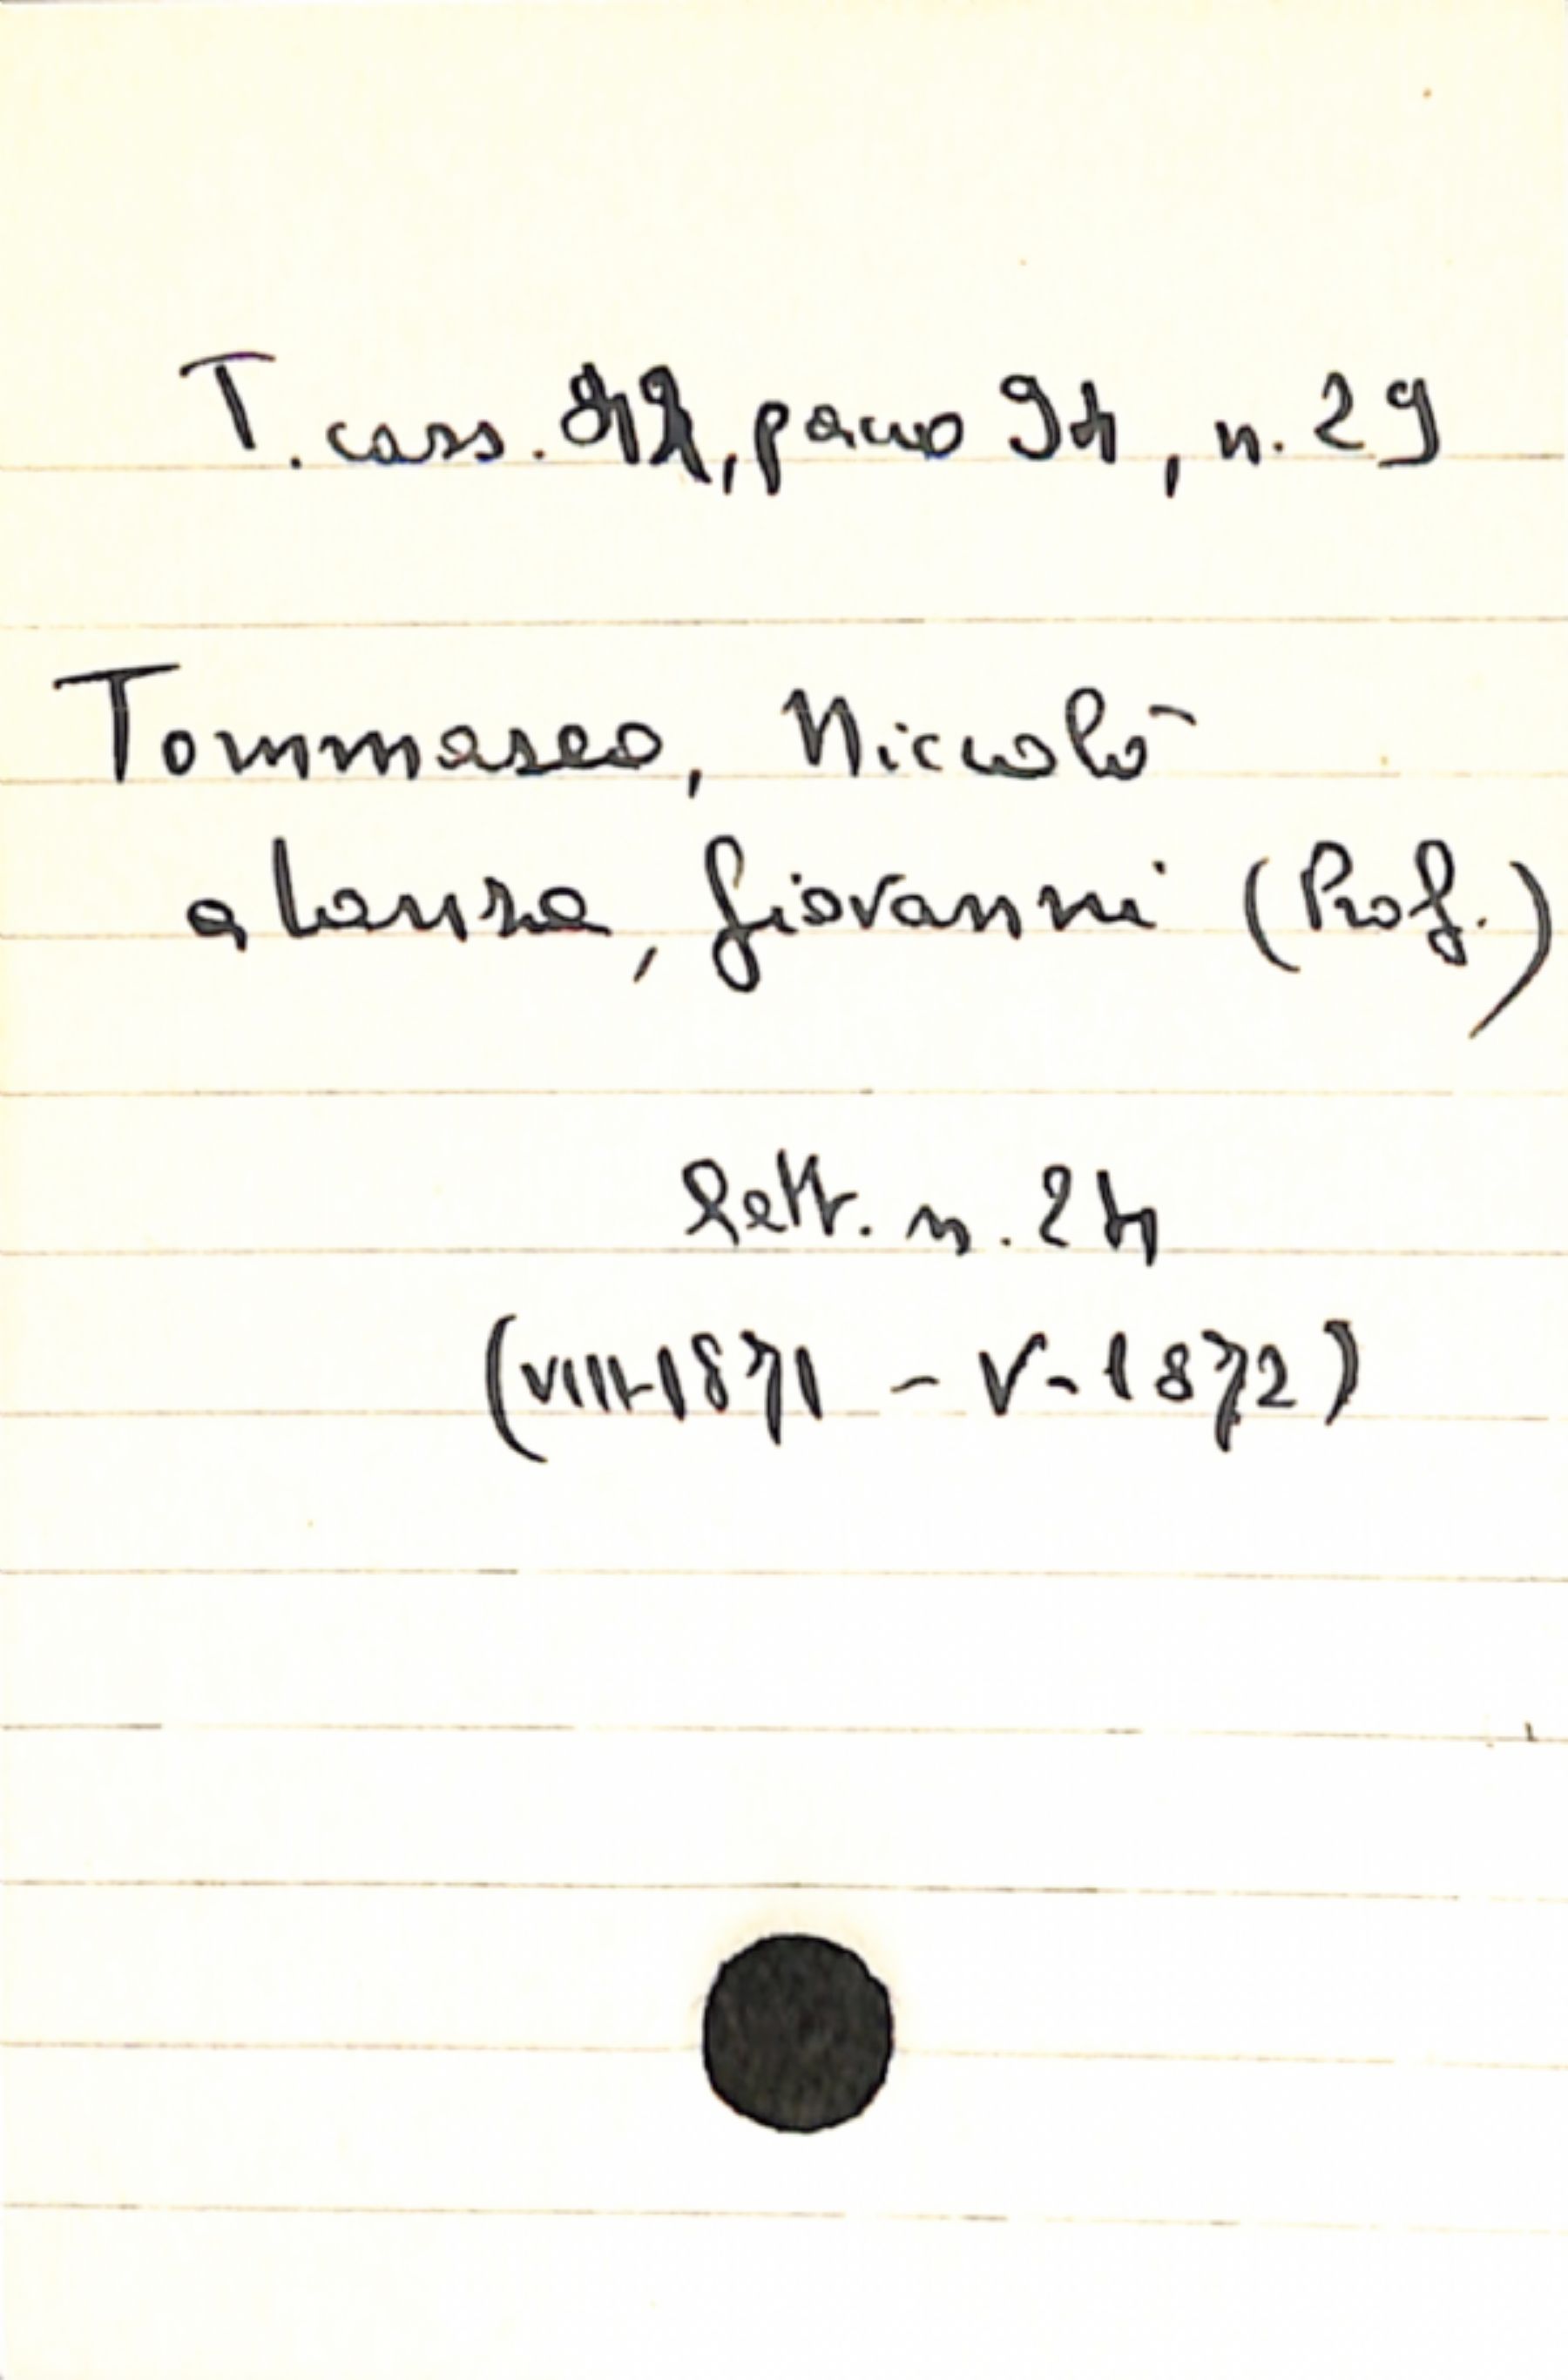 T. cass. , pacco 94, n. 29
Tommaseo, Niccolò
a Lanza, Giovanni (Prof.)
lett. n. 24
(VIII-1871 - V-1872)